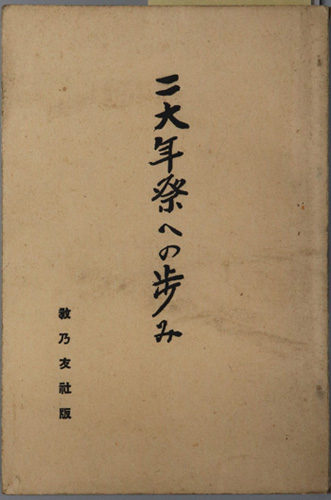 二大年祭への歩み
教乃友社版